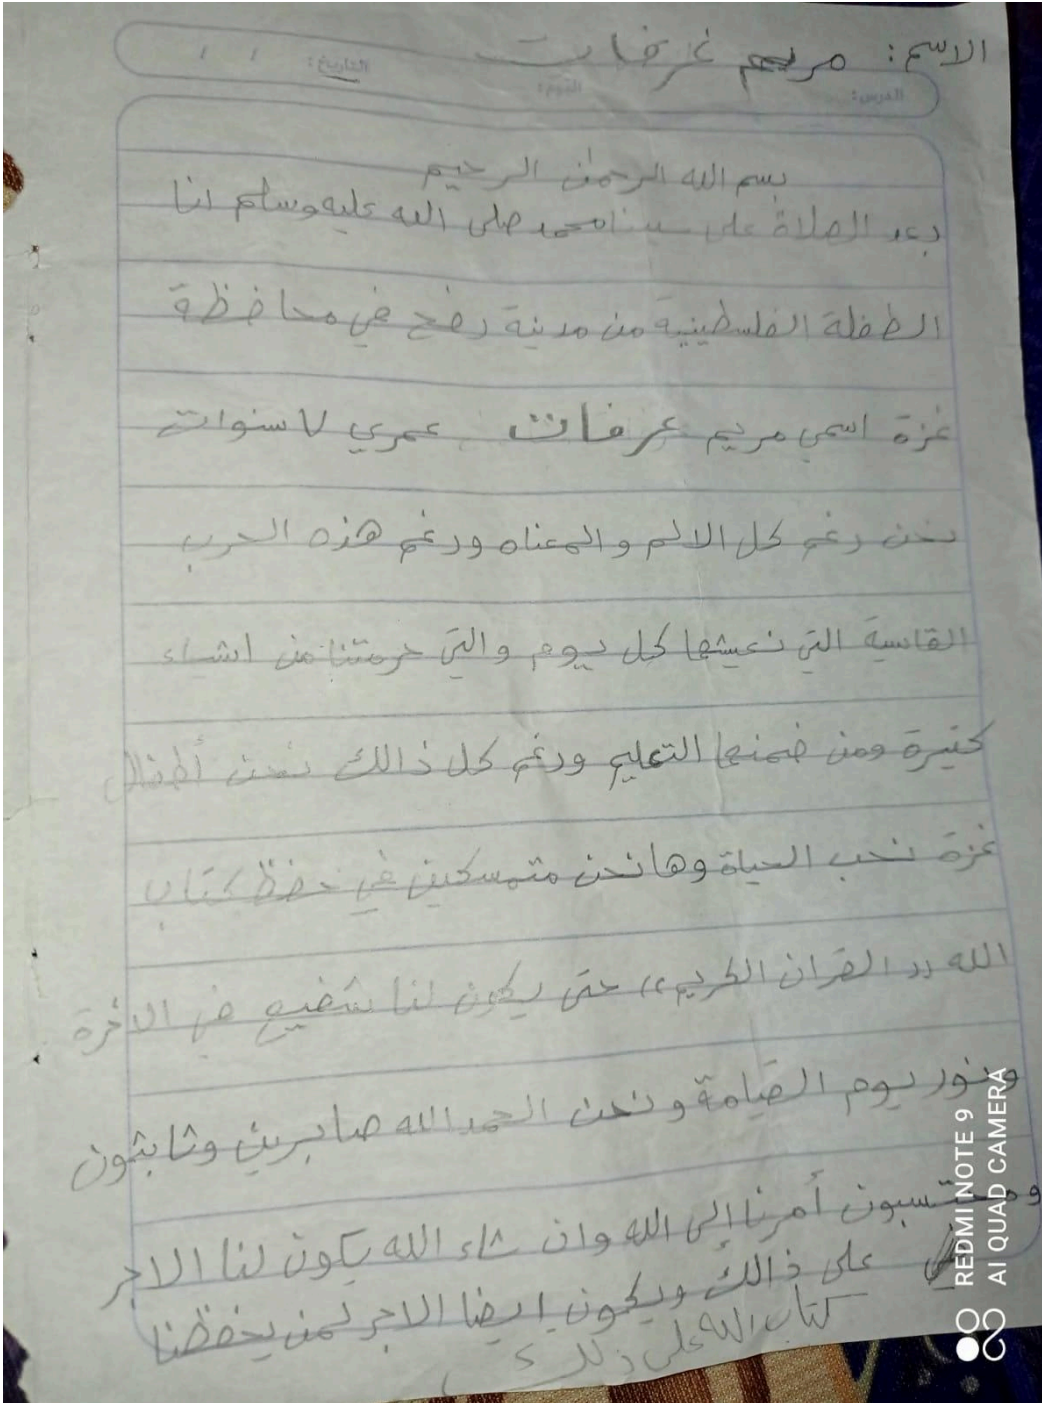 الاسم: مريم عرفات
التاريخ: / /
اليوم:
الدرس:
بسم الله الرحمن الرحيم
بعد الصلاة على سيدنا محمد صلى الله عليه وسلم انا
الطفلة الفلسطينية من مدينة رفح في محافظة
غزة اسمي مريم عرفات عمري ٧ سنوات
نحن رغم كل الالم والمعناه ورغم هذه الحرب
القاسية التي نعيشها كل يوم والتي حرمتنا من اشياء
كثيرة ومن ضمنها التعليم ورغم كل ذالك نحن أطفال
غزة نحب الحياة وها نحن متمسكين في حفظ كتاب
الله "القران الكريم" حتى يكون لنا شفيع في الاخرة
ونور يوم القيامة ونحن الحمد الله صابرين وثابثون
ومحتسبون أمرنا إلى الله وان شاء الله يكون لنا الاجر
على ذالك ويكون ايضا الاجر لمن يحفظنا
كتاب الله على
REDMI NOTE 9
AI QUAD CAMERA